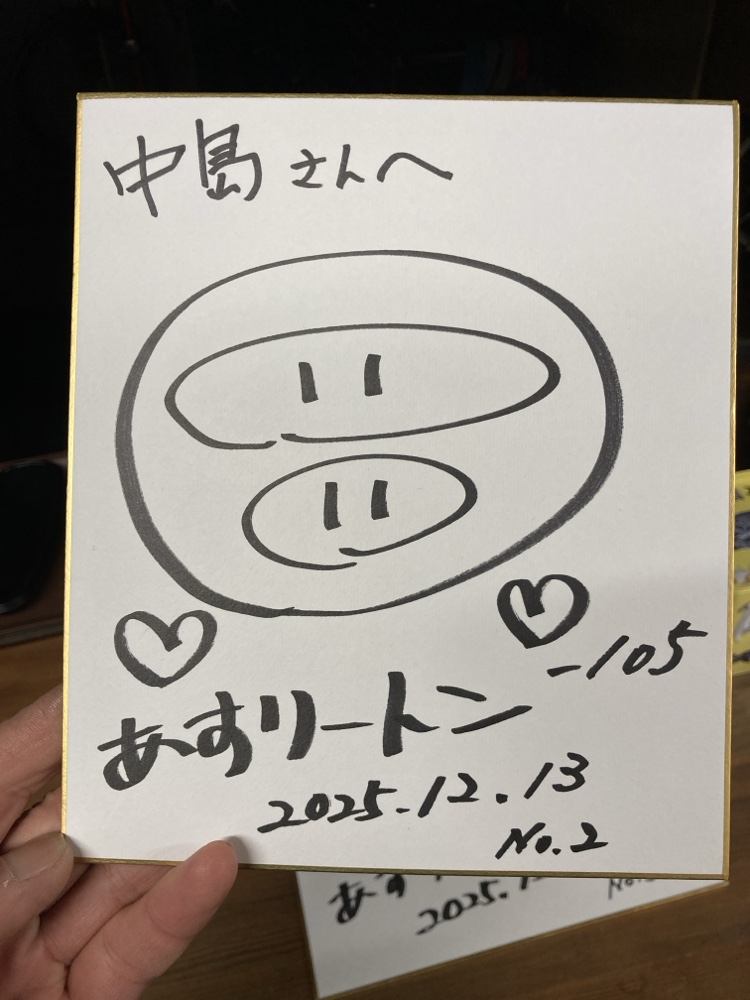 中島さんへ
-105
あすリートン
2025.12.13
No.2
あす
2025.1
No.